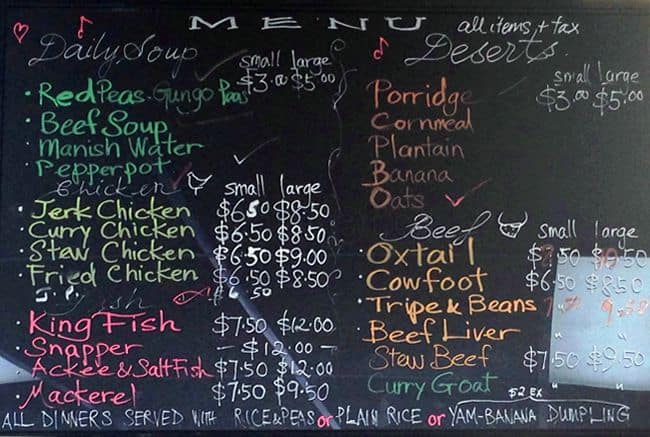 MENU
all items + tax
Daily Soup
small large
$3.00 $5.00
• Red Peas. Gungo Peas
• Beef Soup
• Manish Water
• Pepperpot
Chicken
small large
• Jerk Chicken $6.50 $8.50
• Curry Chicken $6.50 $8.50
• Stew Chicken $6.50 $9.00
• Fried Chicken $6.50 $8.50
Fish
• King Fish $7.50 $12.00
• Snapper - $12.00 -
• Ackee & Salt Fish $7.50 $12.00
• Mackerel $7.50 $9.50
Deserts
small large
$3.00 $5.00
Porridge
Cornmeal
Plantain
Banana
Oats
Beef
small large
Oxtail
• Cowfoot $6.50 $8.50
• Tripe & Beans
• Beef Liver " "
Stew Beef $7.50 $9.50
Curry Goat " "
$2 EX
ALL DINNERS SERVED WITH RICE & PEAS or PLAIN RICE or YAM-BANANA DUMPLING